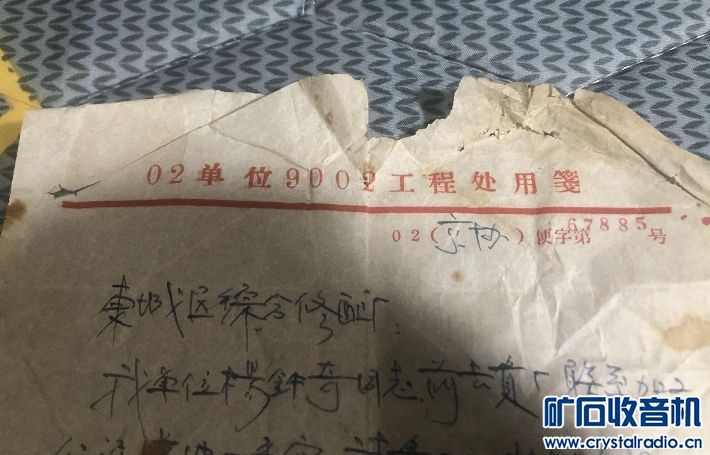 02单位9002工程处用笺
02(京协)便字第67885号
東城区綜合修配厂:
我单位楊鉌奇同志前去貴厂联系加工
矿石收音机
www.crystalradio.cn